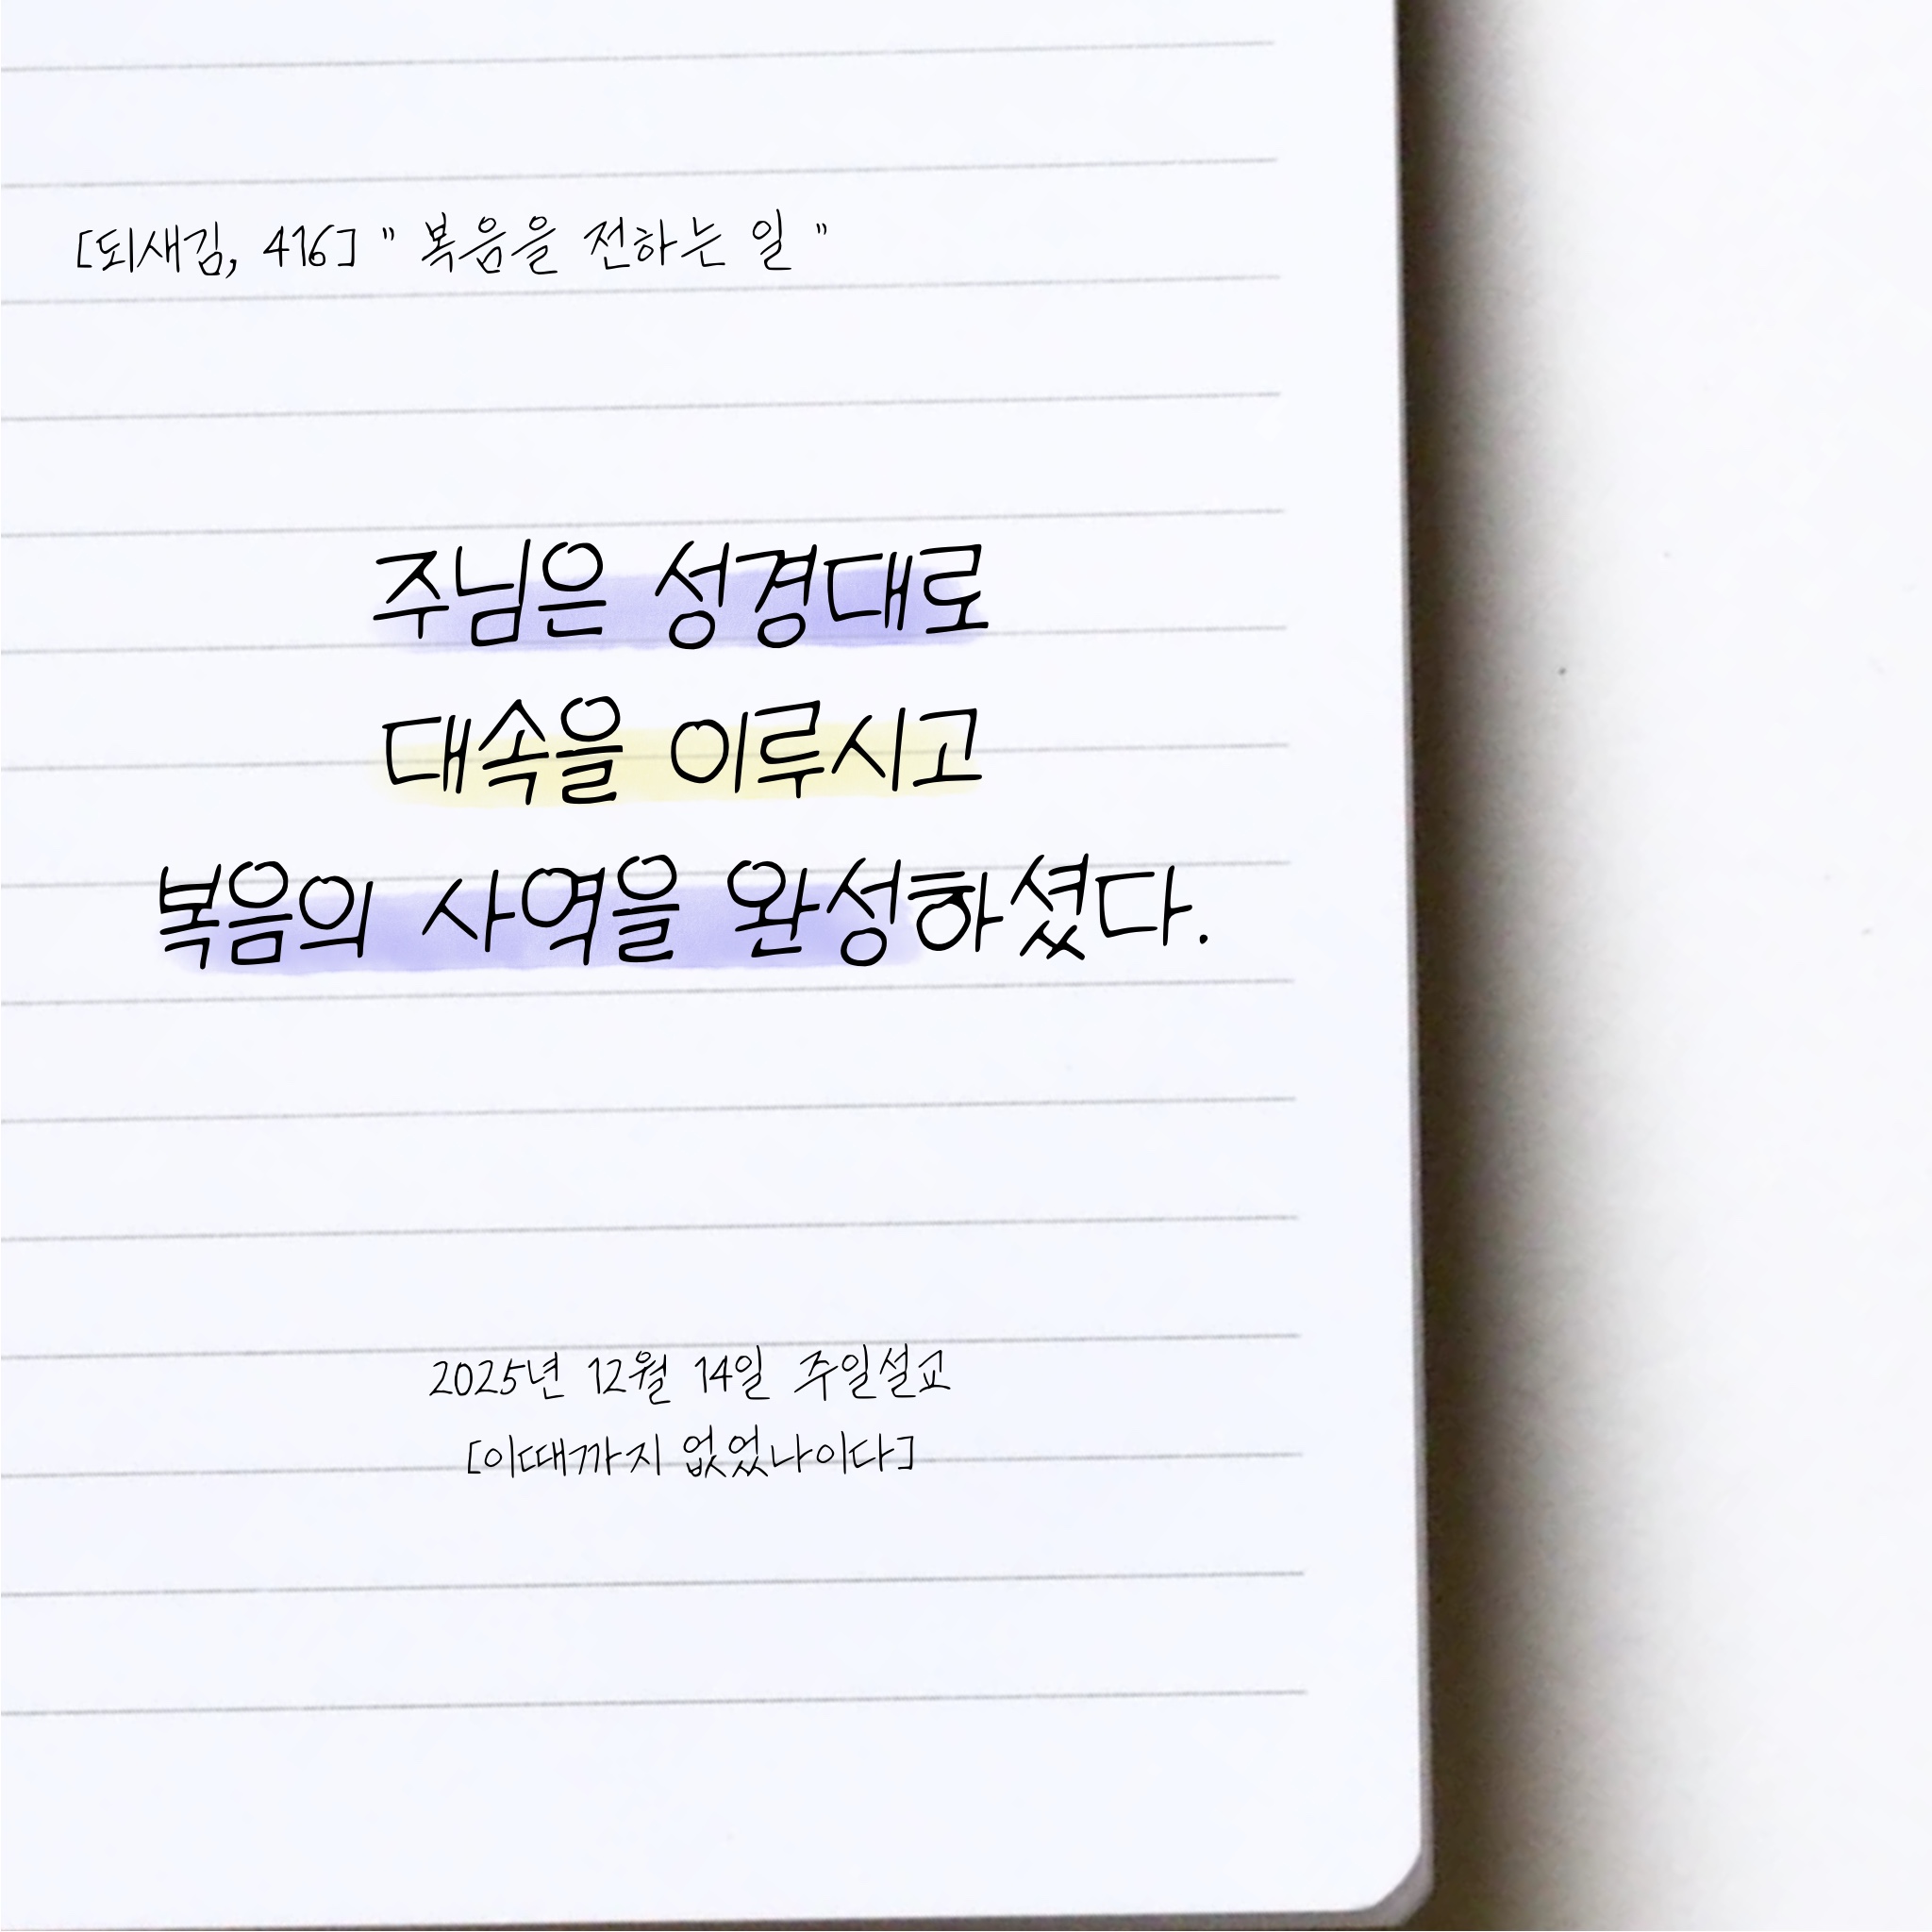 [되새김, 416] " 복음을 전하는 일 "
주님은 성경대로
대속을 이루시고
복음의 사역을 완성하셨다.
2025년 12월 14일 주일설교
[이때까지 없었나이다]